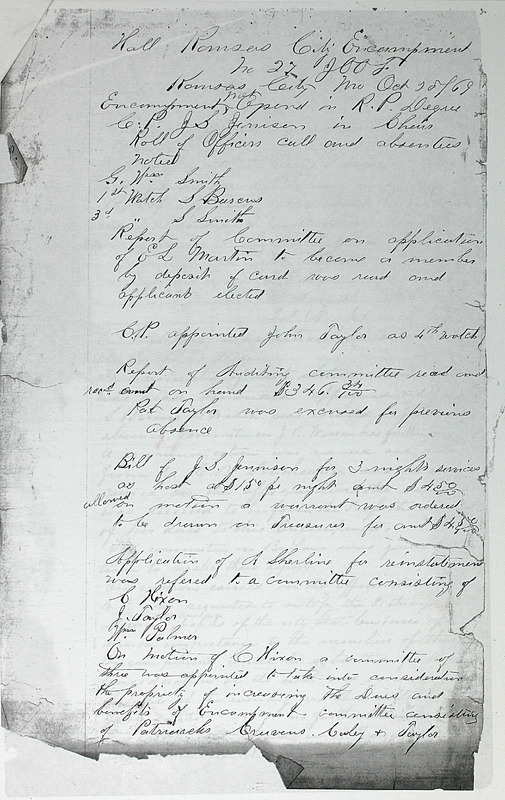 Hall Kansas City Encampment
No 27 IOOF
Kansas City Mo Oct 28/69
Encampment met Opend in R.P. Degree
C.P. J.S. Jinnison in Chair
Roll of Officers call and absenties
noted
G. Smith
1st Watch S Barcus
3d " S Smith
Report of Committee on application
of E L Martin to become a member
by deposit of card was read and
applicant elected
C.P. appointed John Taylor as 4th watch
Report of Auditing committee read and
recd amt on hand $346. 34/100
Pat Taylor was excused for previous
absence
Bill of J.S. Jinnison for 3 nights services
as host at $1 50 pr night amt $4 50/100
allowed on motion a warrant was ordered
to be drawn on Treasurer for amt $4 50/100
Application of A Sherline for reinstatement
was refered to a committee consisting of
C Hixon
J. Taylor
Wm Palmer
On motion of C Hixon a committee of
three was appointed to take into consideration
the propriety of increasing the Dues and
benefits of Encampment committee consisting
of Patriarchs Cravens & Taylor